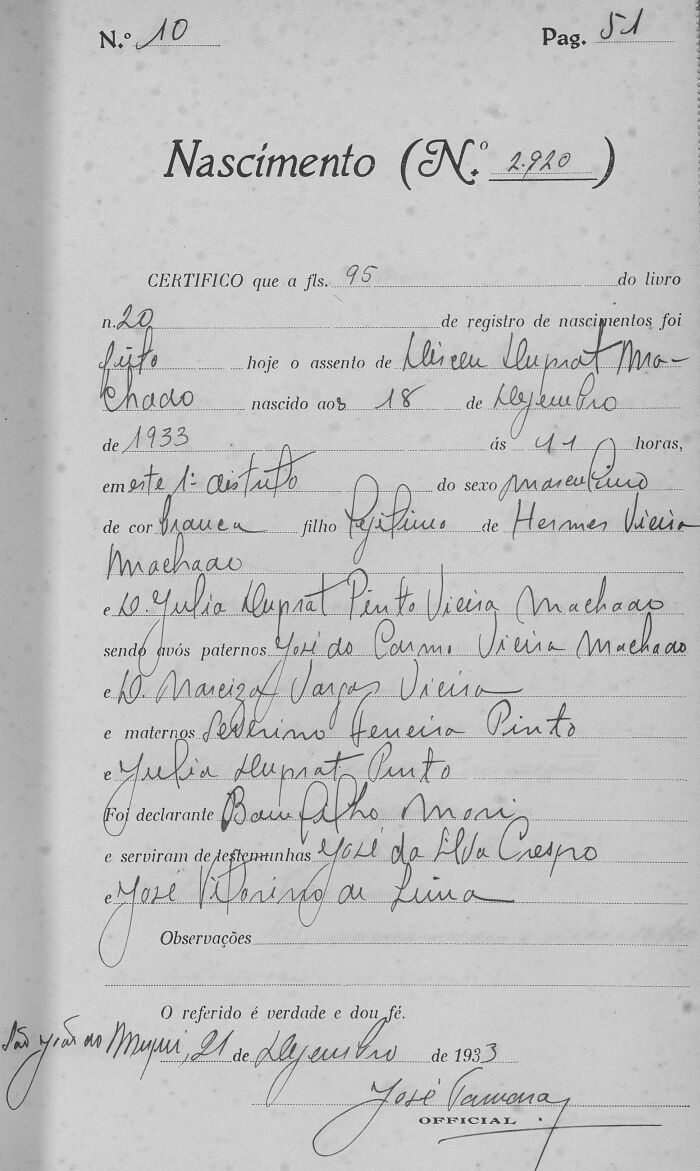 N.º 10 Pag. 51
Nascimento (N.º 2.920)
CERTIFICO que a fls. 95 do livro
n. 20 de registro de nascimentos foi
feito hoje o assento de Dirceu Duprat Ma-
chado nascido aos 18 de Dezembro
de 1933 ás 11 horas,
em este 1º distrito do sexo masculino
de cor branca filho legitimo de Hermes Vieira
Machado
e D. Julia Duprat Pinto Vieira Machado
sendo avós paternos José do Carmo Vieira Machado
e D. Narciza Vargas Vieira
e maternos Severino Ferreira Pinto
e Julia Duprat Pinto
Foi declarante Bomfilho Mori
e serviram de testemunhas José da Silva Crespo
e José Vitorino de Lima
Observações
O referido é verdade e dou fé.
São João do Muqui, 21 de Dezembro de 1933
José
OFFICIAL